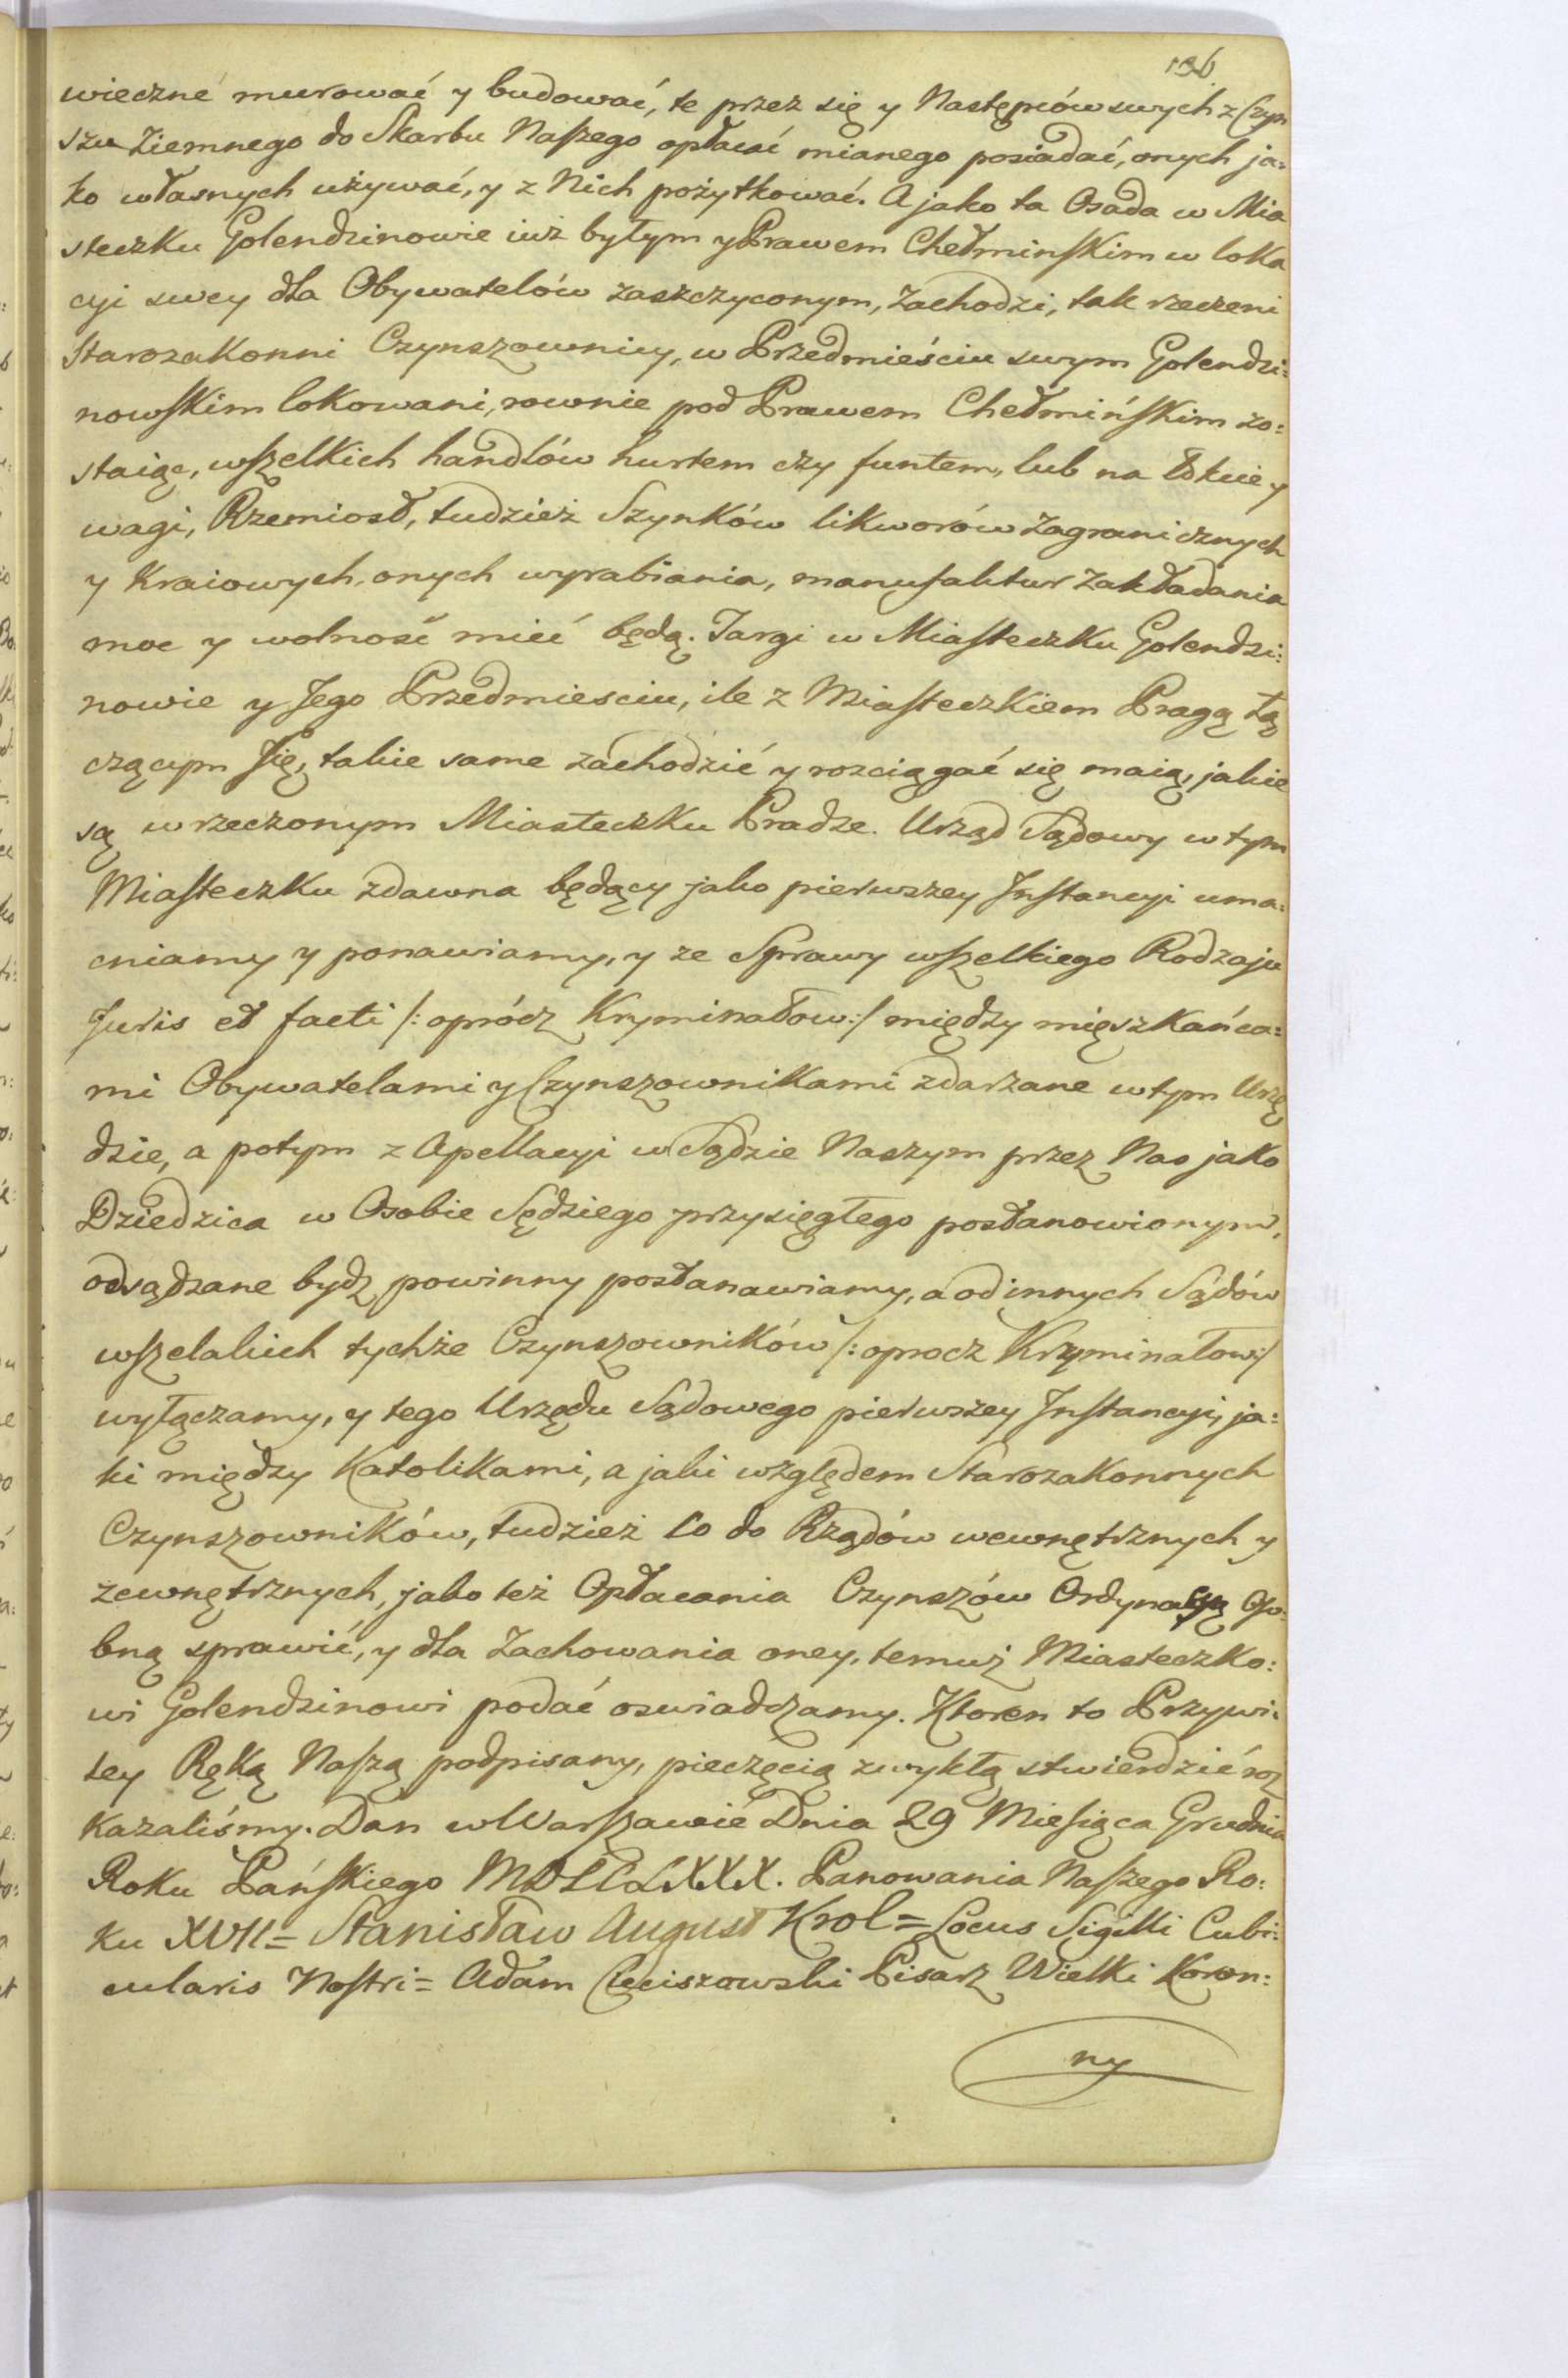 196
wieczne murować y budować, te przez się y Następców swych z Czyn
szu Ziemnego do Skarbu Naszego opłacać mianego posiadać, onych ja:
ko własnych używać, y z Nich pożytkować. A jako ta Osada w Mia
steczku Golendzinowie iuż byłym y Prawem Chełminskim w loka
cyi swey dla Obywatelów zaszczyconym, zachodzi, tak rzeczeni
Starozakonni Czynszownicy, w Przedmieściu swym Golendzi:
nowskim lokowani, rownie pod Prawem Chełmińskim zo:
staiąc, wszelkich handlów hurtem czy funtem, lub na łokcie y
wagi, Rzemiosł, tudzież Szynków likworów Zagranicznych
y Kraiowych, onych wyrabiania, manufaktur zakładania
moc y wolność mieć będą. Targi w Miasteczku Golendzi:
nowie y Jego Przedmiesciu, ile z Miasteczkiem Pragą łą
czącym się, takie same zachodzić y rozciągać się maią, jakie
są w rzeczonym Miasteczku Pradze. Urząd Sądowy w tym
Miasteczku zdawna będący jako pierwszey Instancyi uma:
cniamy y ponawiamy, y ze Sprawy wszelkiego Rodzaju
Juris et facti /: oprócz Kryminałow :/ między mięszkańca:
mi Obywatelami y Czynszownikami zdarzane w tym Urzę
dzie, a potym z Apellacyi w Sądzie Naszym przez Nas jako
Dziedzica w Osobie Sędziego przysięgłego postanowionym,
odsądzane bydz powinny postanawiamy, a od innych Sądów
wszelakich tychże Czynszowników /: oprocz Kryminałow :/
wyłączamy, y tego Urzędu Sądowego pierwszey Instancyi, ja:
ki między Katolikami, a jaki względem Starozakonnych
Czynszowników, tudzież co do Rządów wewnętrznych y
zewnętrznych, jako też Opłacania Czynszów Ordynacyą Oso:
bną sprawić, y dla zachowania oney, temuż Miasteczko:
wi Golendzinowi podać oswiadczamy. Ktoren to Przywi:
ley Ręką Naszą podpisany, pieczęcią zwykłą stwierdzić roz
kazaliśmy. Dan w Warszawie Dnia 29 Miesiąca Grudnia
Roku Pańskiego MDCCLXXX. Panowania Naszego Ro:
ku XVII = Stanisław August Krol = Locus Sigilli Cubi:
cularis Nostri = Adam Cieciszowski Pisarz Wielki Koron:
ny